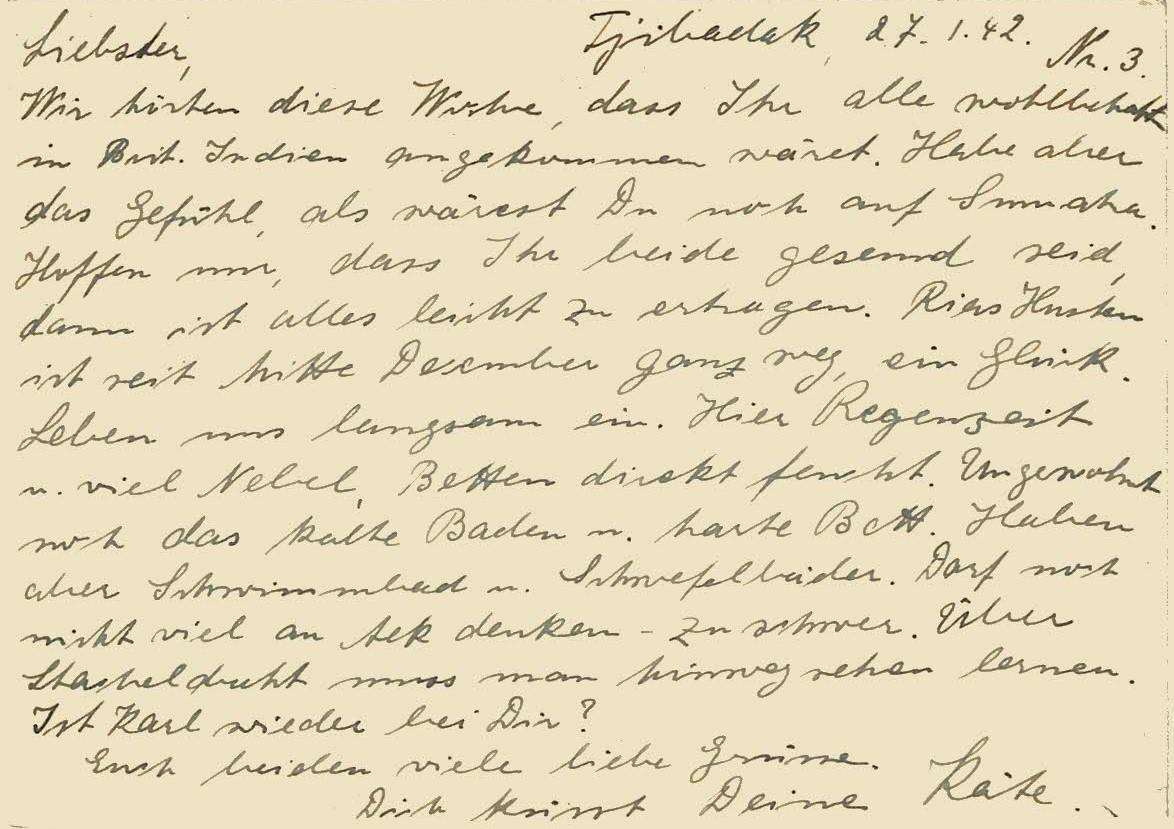 Liebster, Tjibadak, 27.1.42. Nr. 3.
Wir hörten diese Woche, dass Ihr alle wohlbehalt
in Brit. Indien angekommen wäret. Habe aber
das Gefühl, als wärest Du noch auf Sumatra.
Hoffen nur, dass Ihr beide gesund seid,
dann ist alles leicht zu ertragen. Rias Husten
ist seit Mitte Dezember ganz weg, ein Glück.
Leben uns langsam ein. Hier Regenzeit
u. viel Nebel, Betten direkt feucht. Ungewohnt
noch das kalte Baden u. harte Bett. Haben
aber Schwimmbad u. Schwefelbäder. Darf noch
nicht viel an denken - zu schwer. Über
Stacheldraht muss man hinwegsehen lernen.
Ist Karl wieder bei Dir?
Euch beiden viele liebe Grüsse.
Dich küsst Deine Käte.